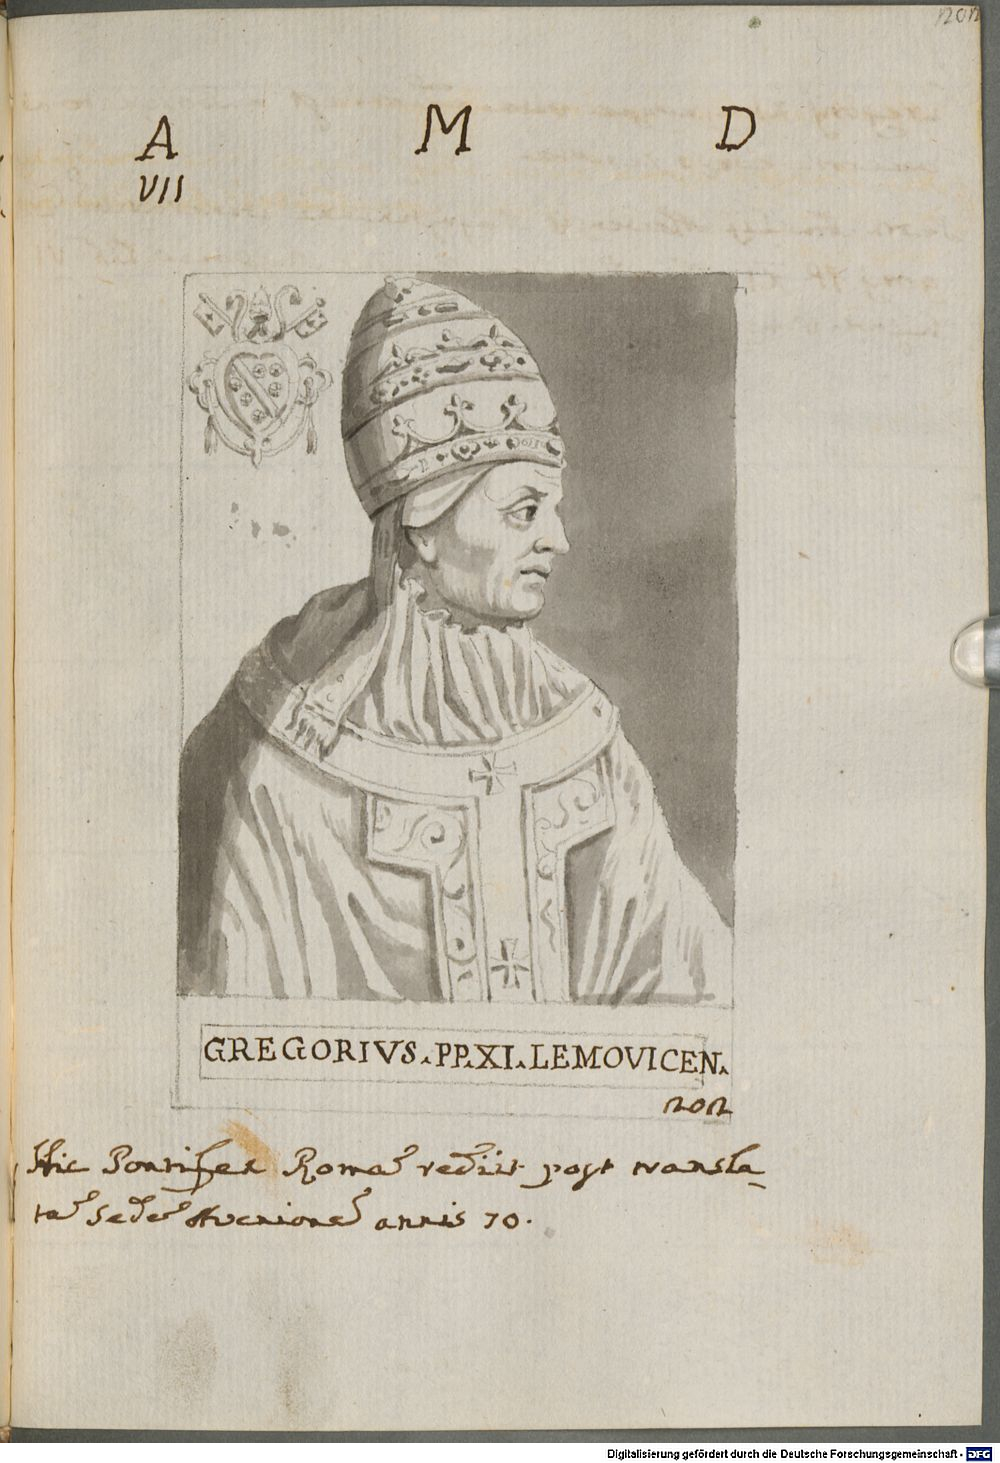 202
A M D
VII
GREGORIVS. PP. XI. LEMOVICEN.
202
Hic Pontifex Romã rediit post transla-
tã Sedẽ Avenionẽ annis 70.
Digitalisierung gefördert durch die Deutsche Forschungsgemeinschaft - DFG